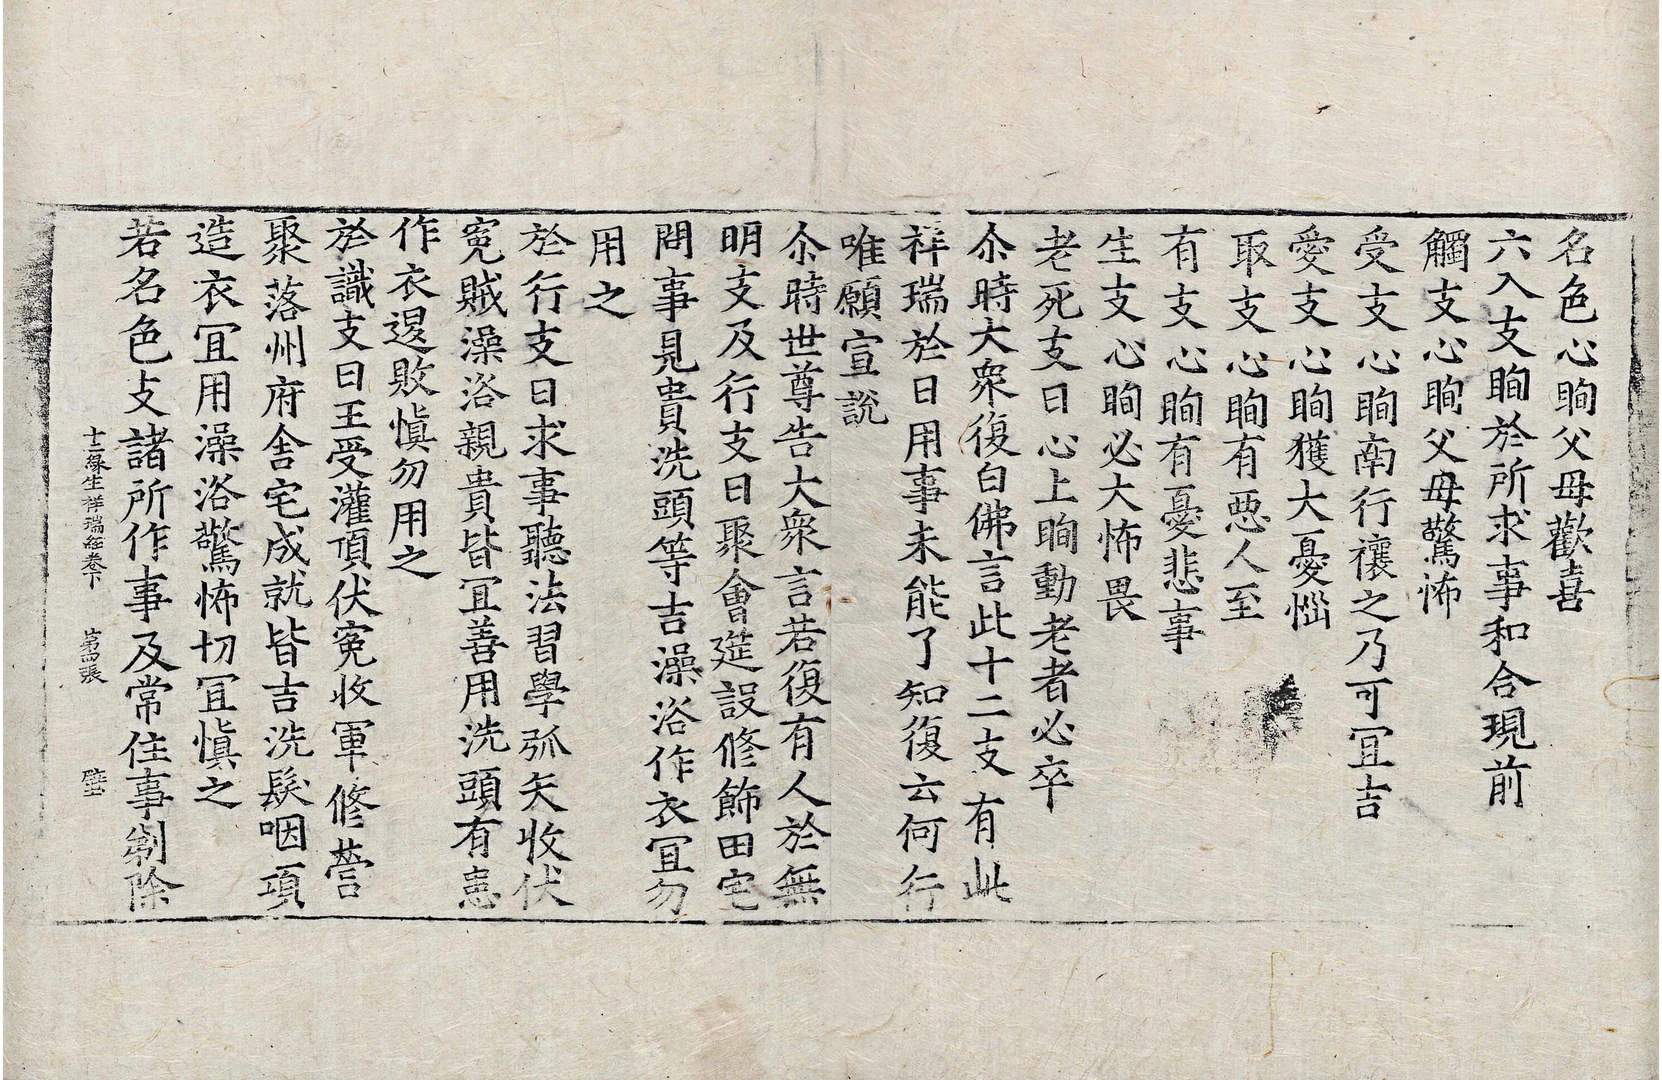 名色心眴父母歡喜
六入支眴於所求事和合現前
觸支心眴父母驚怖
受支心眴商行禳之乃可冝吉
愛支心眴獲大憂惱
取支心眴有惡人至
有支心眴有憂悲事
生支心眴必大怖畏
老死支日心上眴動老者必卒
尒時大衆復白佛言此十二支有此
祥瑞於日用事未能了知復云何行
唯願宣說
尒時世尊告大衆言若復有人於無
明支及行支日聚會筵設修飾田宅
問事見貴洗頭等吉澡浴作衣冝勿
用之
於行支日求事聽法習學弧矢收伏
寃賊澡浴親貴皆冝善用洗頭有恚
作衣邊敗愼勿用之
於識支日王受灌頂伏寃收軍修營
聚落州府舍宅成就皆吉洗髮咽項
造衣冝用澡浴驚怖切冝愼之
十二緣生祥瑞經卷下 第四張 壁
若名色支諸所作事及常住事剃除